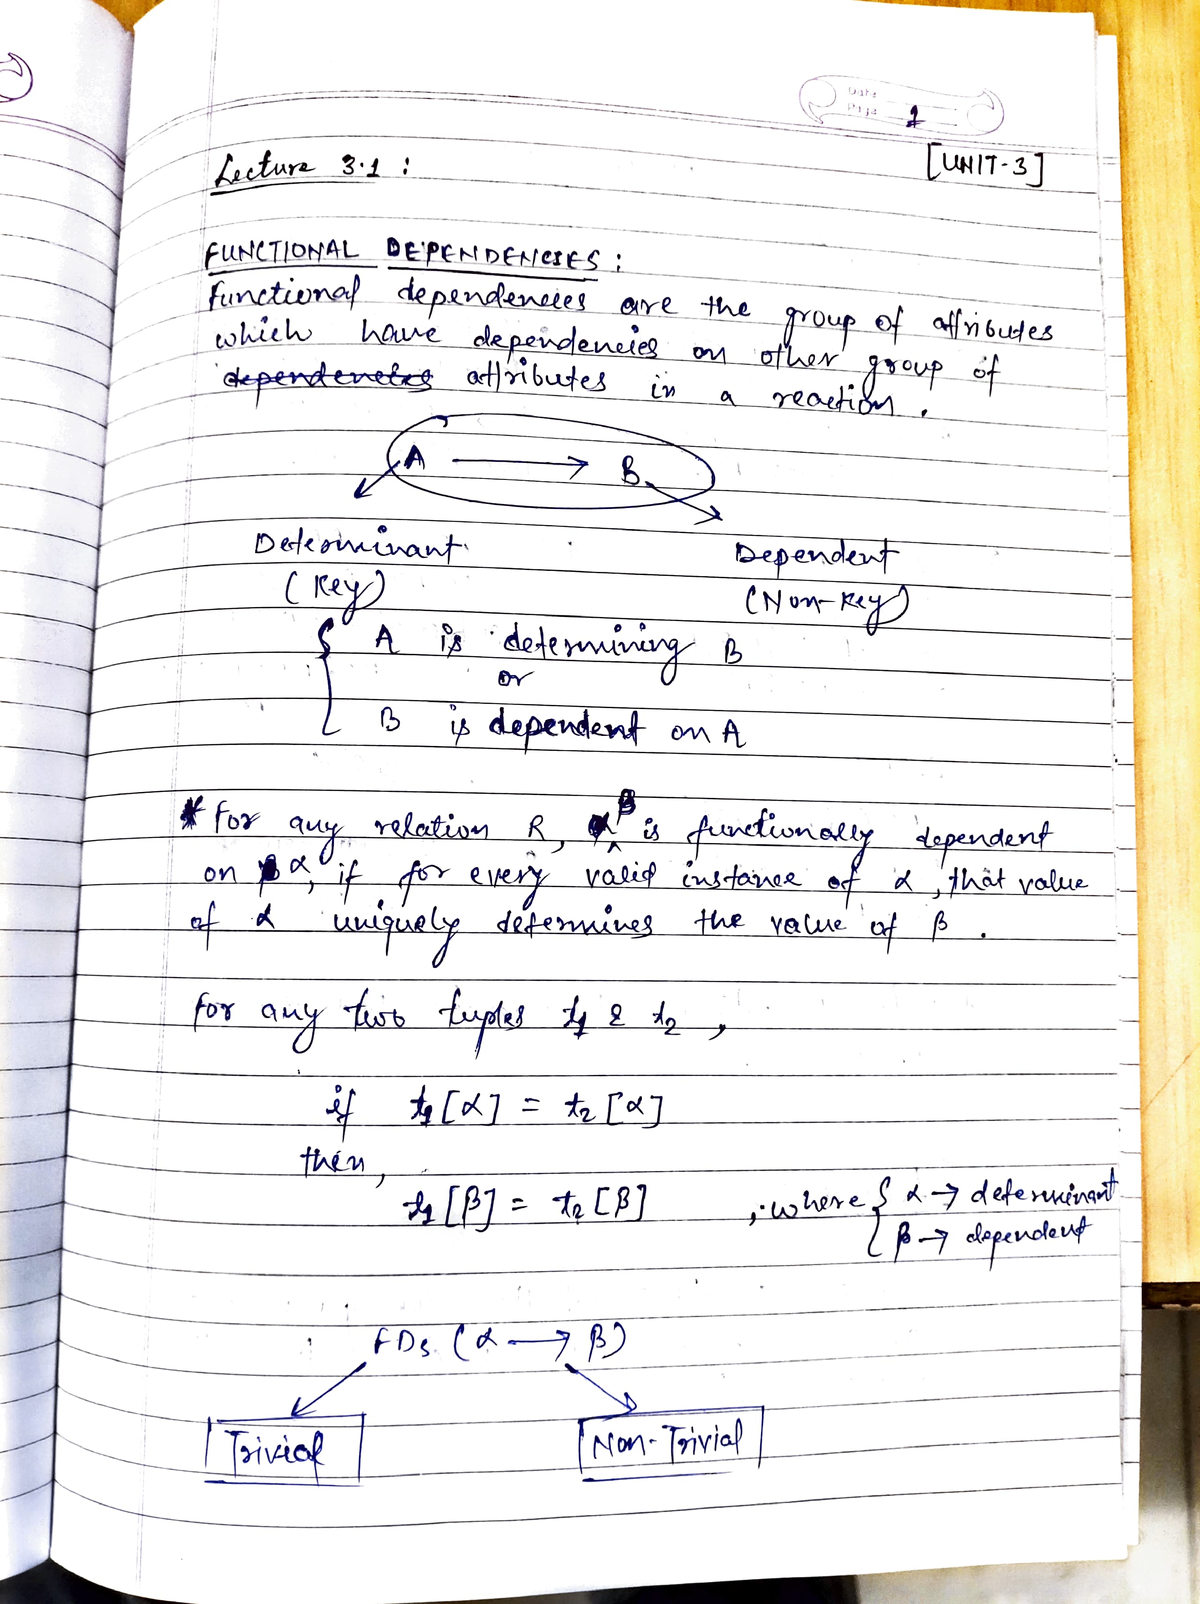 Date
Page 1
Lecture 3.1 :
[UNIT-3]
FUNCTIONAL DEPENDENCIES :
functional dependencies are the group of attributes
which have dependencies on other group of
dependencies attributes in a reaction .
A → B
Determinant Dependent
(Key) (Non-Key)
{ A is determining B
or
B is dependent on A
* for any relation R, β is functionally dependent
on α, if for every valid instance of α, that value
of α uniquely determines the value of β .
for any two tuples t1 & t2 ,
if t1 [α] = t2 [α]
then,
t1 [β] = t2 [β] , where { α → determinant
β → dependent
FDs (α → β)
Trivial Non-Trivial